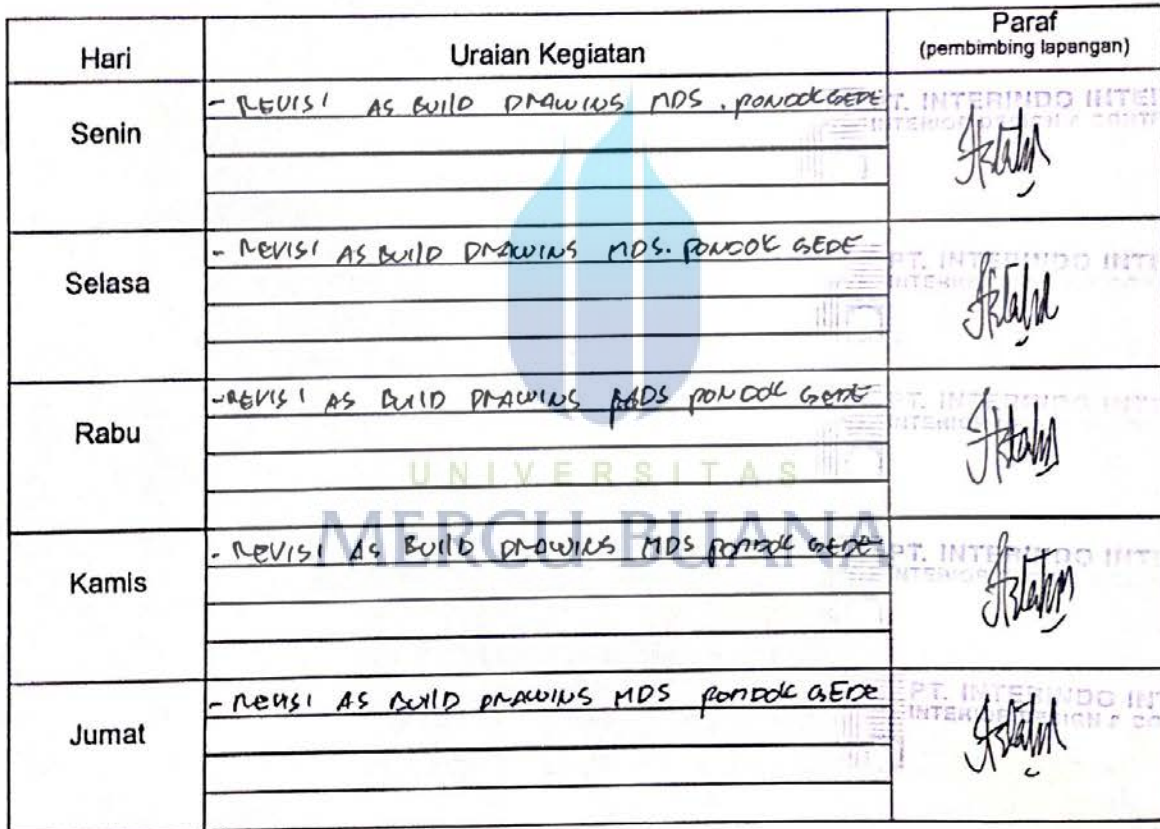 Hari Uraian Kegiatan Paraf
(pembimbing lapangan)
Senin - REVISI AS BUILD DRAWING MDS. PONDOK GEDE
PT. INTERINDO
Selasa - REVISI AS BUILD DRAWING MDS. PONDOK GEDE
PT. INTERINDO
Rabu - REVISI AS BUILD DRAWING MDS PONDOK GEDE
PT. INTERINDO
UNIVERSITAS
MERCU BUANA
Kamis - REVISI AS BUILD DRAWING MDS PONDOK GEDE
PT. INTERINDO
Jumat - REVISI AS BUILD DRAWING MDS PONDOK GEDE
PT. INTERINDO